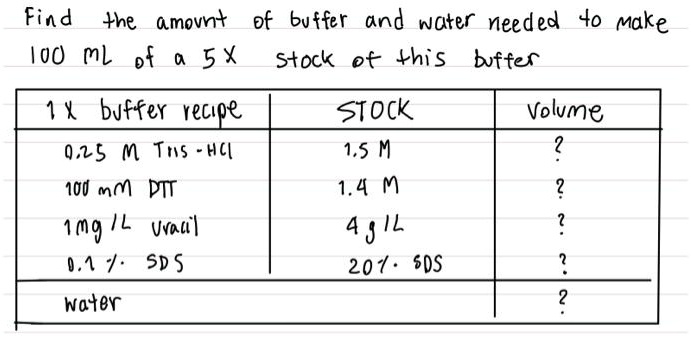 Find the amount of buffer and water needed to make
100 mL of a 5X stock of this buffer
1X buffer recipe STOCK Volume
0.25 M Tris-HCl 1.5 M ?
100 mM DTT 1.4 M ?
1mg/L Uracil 4g/L ?
0.1%. SDS 20%. SDS ?
water ?